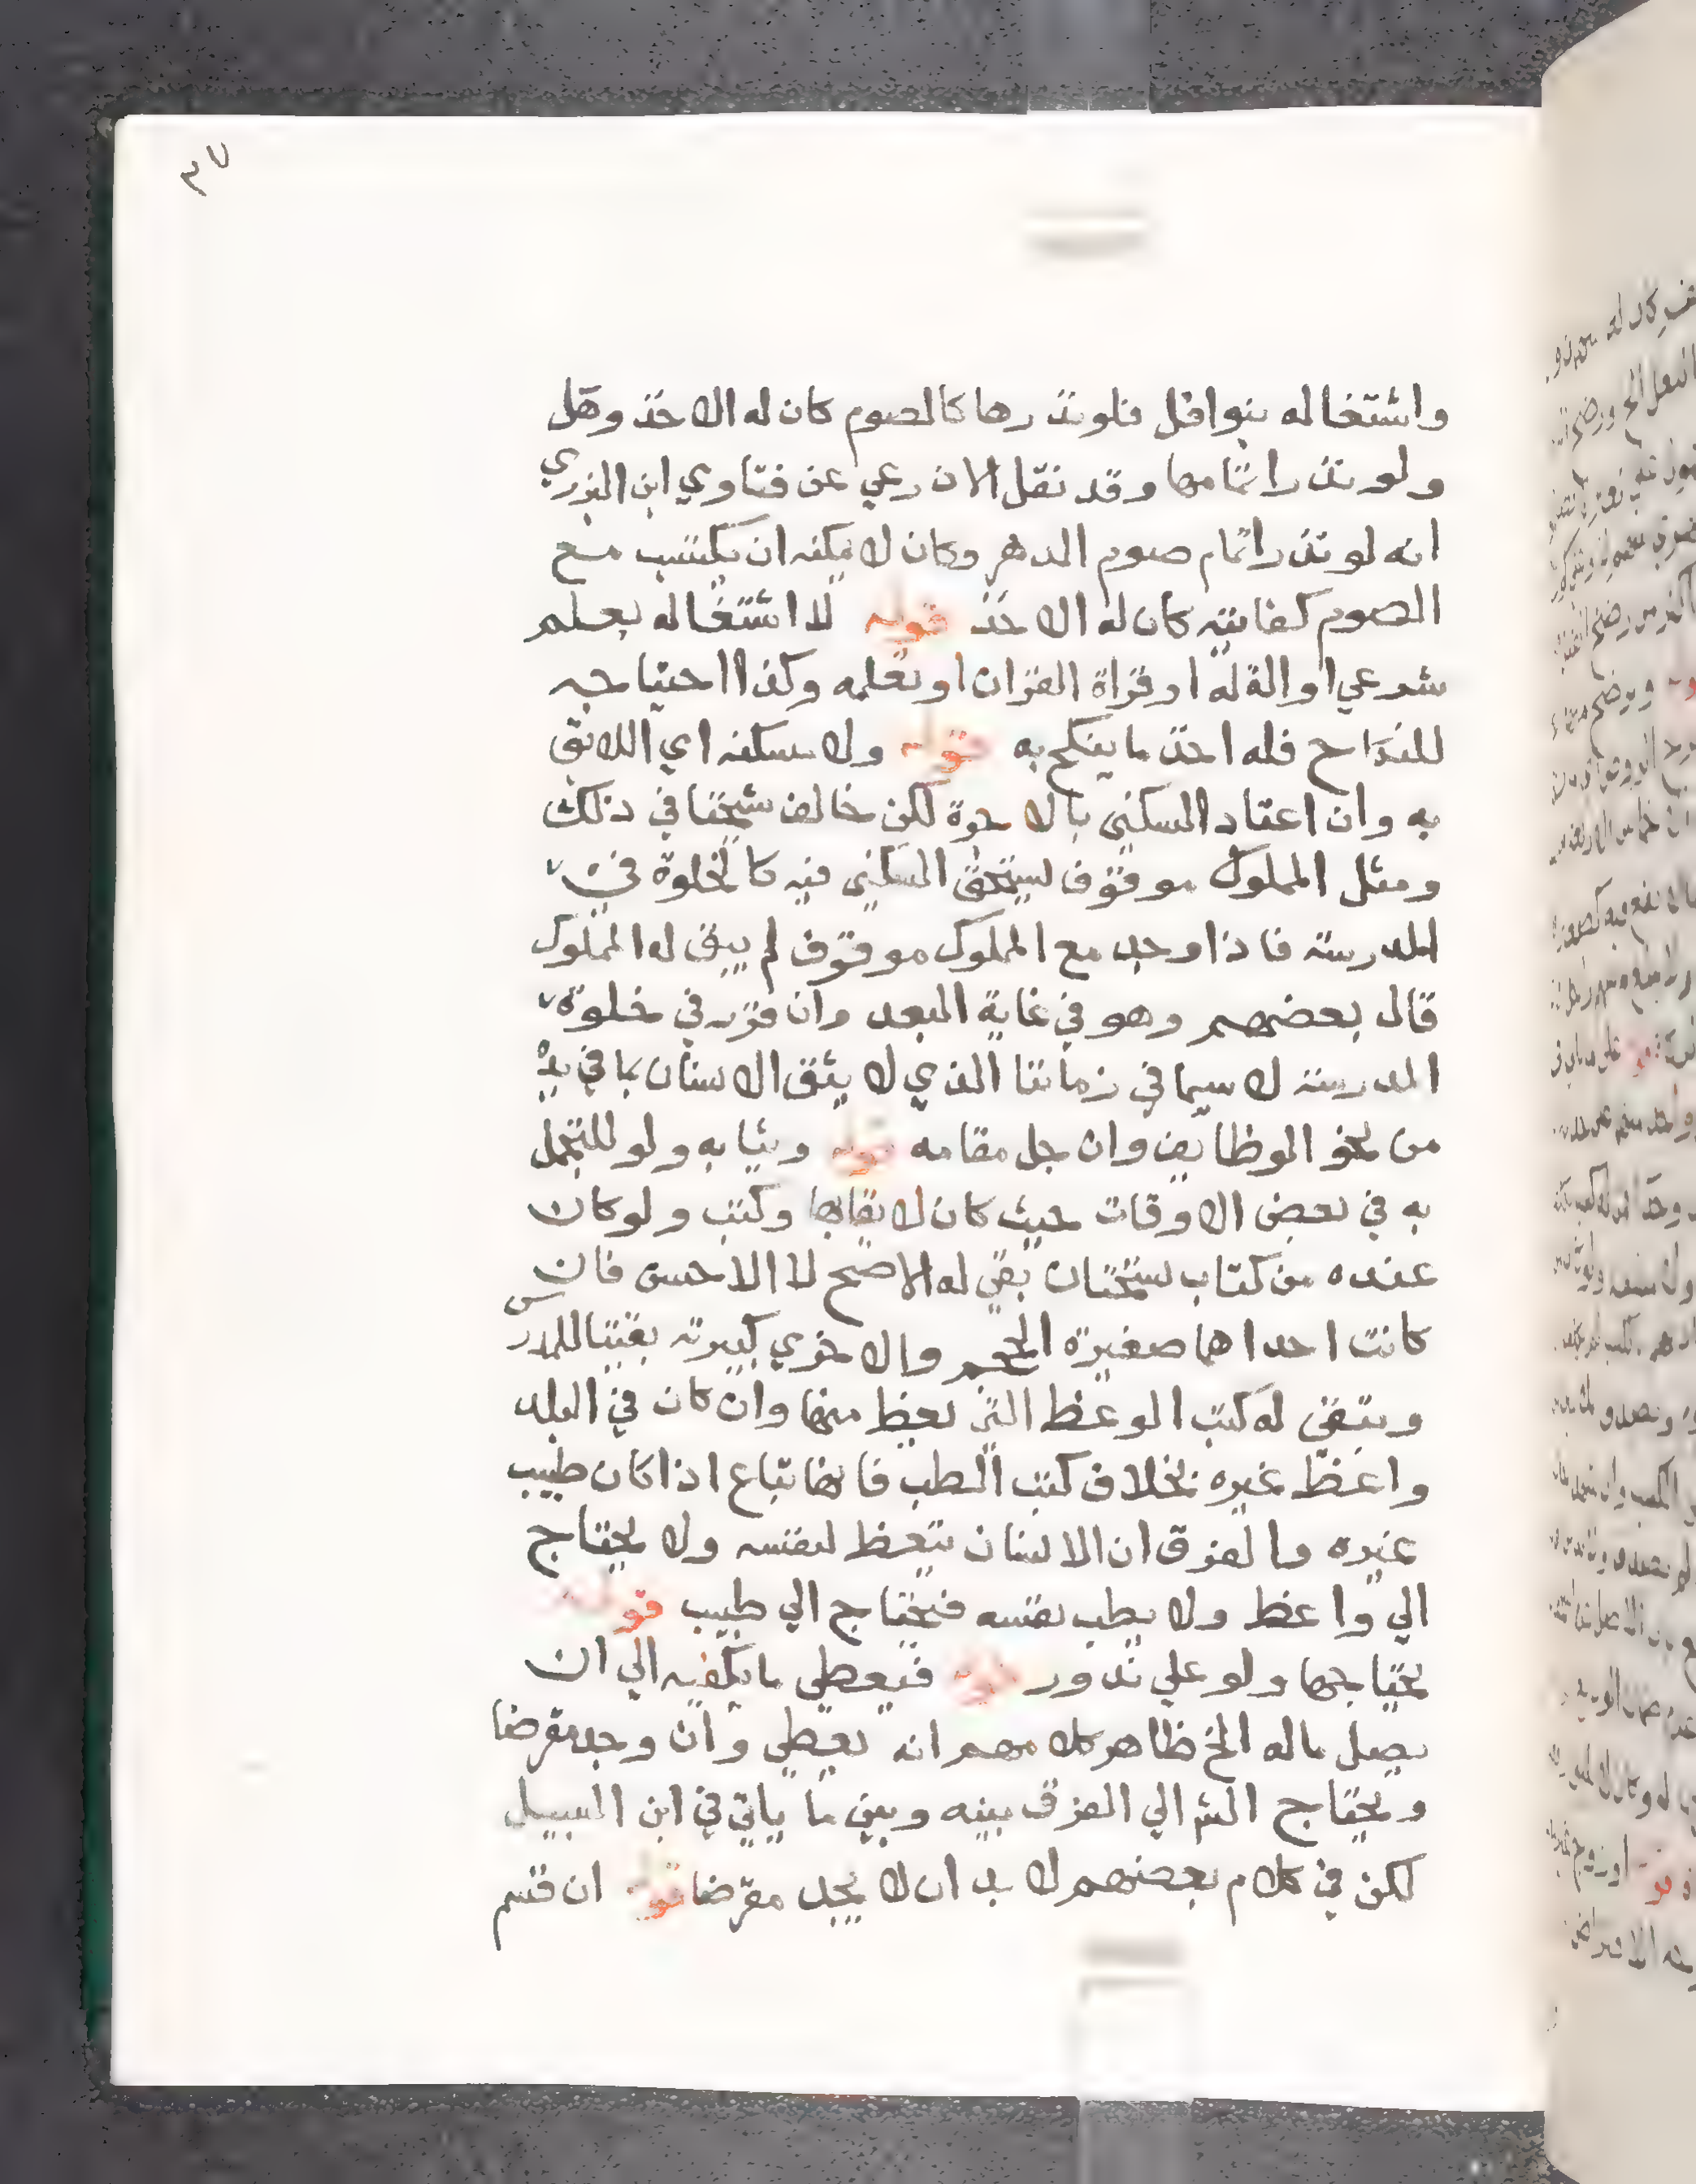 ٣٧
واشتغاله بنوافل فلو نذرها كالصوم كان له الاخذ وهل
ولو نذر اتمامها وقد نقل الاذرعي عن فتاوي ابن البزري
انه لو نذر اتمام صوم الدهر وكان لا يمكنه ان يكتسب مع
الصوم كفايته كان له الاخذ قوله لا اشتغاله بعلم
شرعي او الة له او قراة القران او تعلمه وكذا احتياجه
للنكاح فله اخذ ما ينكح به قوله ولا مسكنه اي اللائق
به وان اعتاد السكني بالاجرة لكن خالف شيخنا في ذلك
ومثل المملوك موقوف يستحق السكني فيه كالخلوة في
المدرسة فاذا وجد مع المملوك موقوف لم يبق له المملوك
قال بعضهم وهو في غاية البعد وان قرر في خلوة
المدرسة لا سيما في زماننا الذي لا يثق الانسان بما في يده
من نحو الوظايف وان جل مقامه قوله وثيابه ولو للتجمل
به في بعض الاوقات حيث كان لايقابها وكتب ولو كان
عنده من كتاب نسختان بقي له الاصح لا الاحسن فان
كانت احداهما صغيرة الحجم والاخري كبيرة بقيتا للمدرس
وتبقي له كتب الوعظ التي يعظ منها وان كان في البلد
واعظ غيره بخلاف كتب الطب فانها تباع اذا كان طبيب
غيره والفرق ان الانسان يتعظ لنفسه ولا يحتاج
الي واعظ ولا يطب نفسه فيحتاج الي طبيب قوله
يحتاجها ولو علي ندور قوله فيعطي ما يكفيه الي ان
يصل ماله الخ ظاهر كلامهم انه يعطي وان وجد مقرضا
ويحتاج الي الفرق بينه وبين ما ياتي في ابن السبيل
لكن في كلام بعضهم لا بد ان لا يجد مقرضا قوله ان قسم